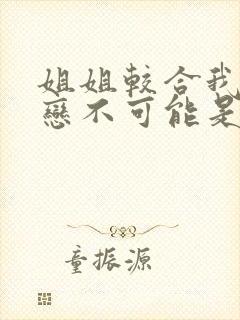 姐姐較合我
戀不可能是
童振源